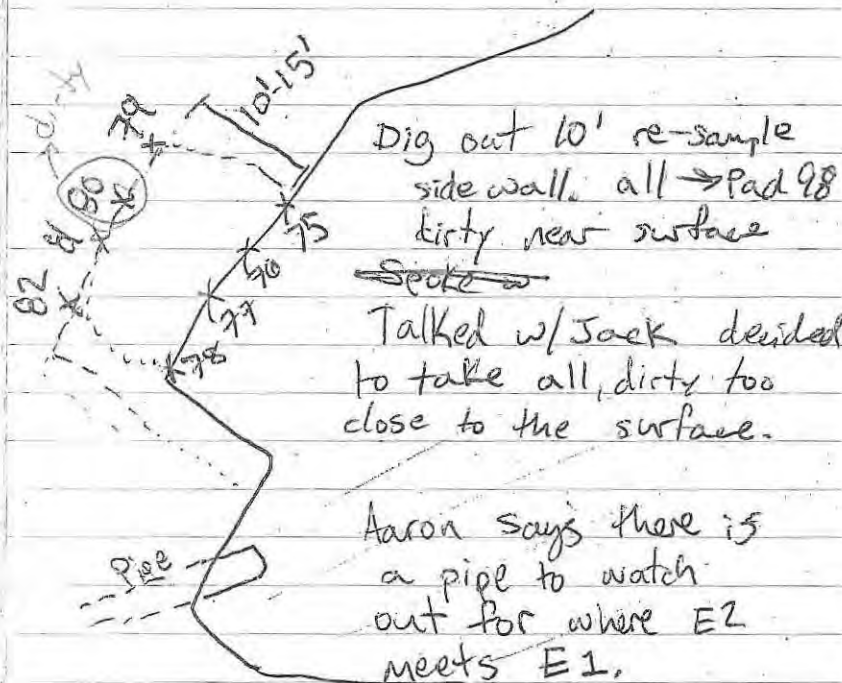 dirty
79
10'-15'
80
81
82
75
76
77
78
Pipe
Dig out 10' re-sample
side wall. all → Pad 98
dirty near surface
Spoke w
Talked w/Jack decided
to take all, dirty too
close to the surface.
Aaron says there is
a pipe to watch
out for where E2
meets E1.